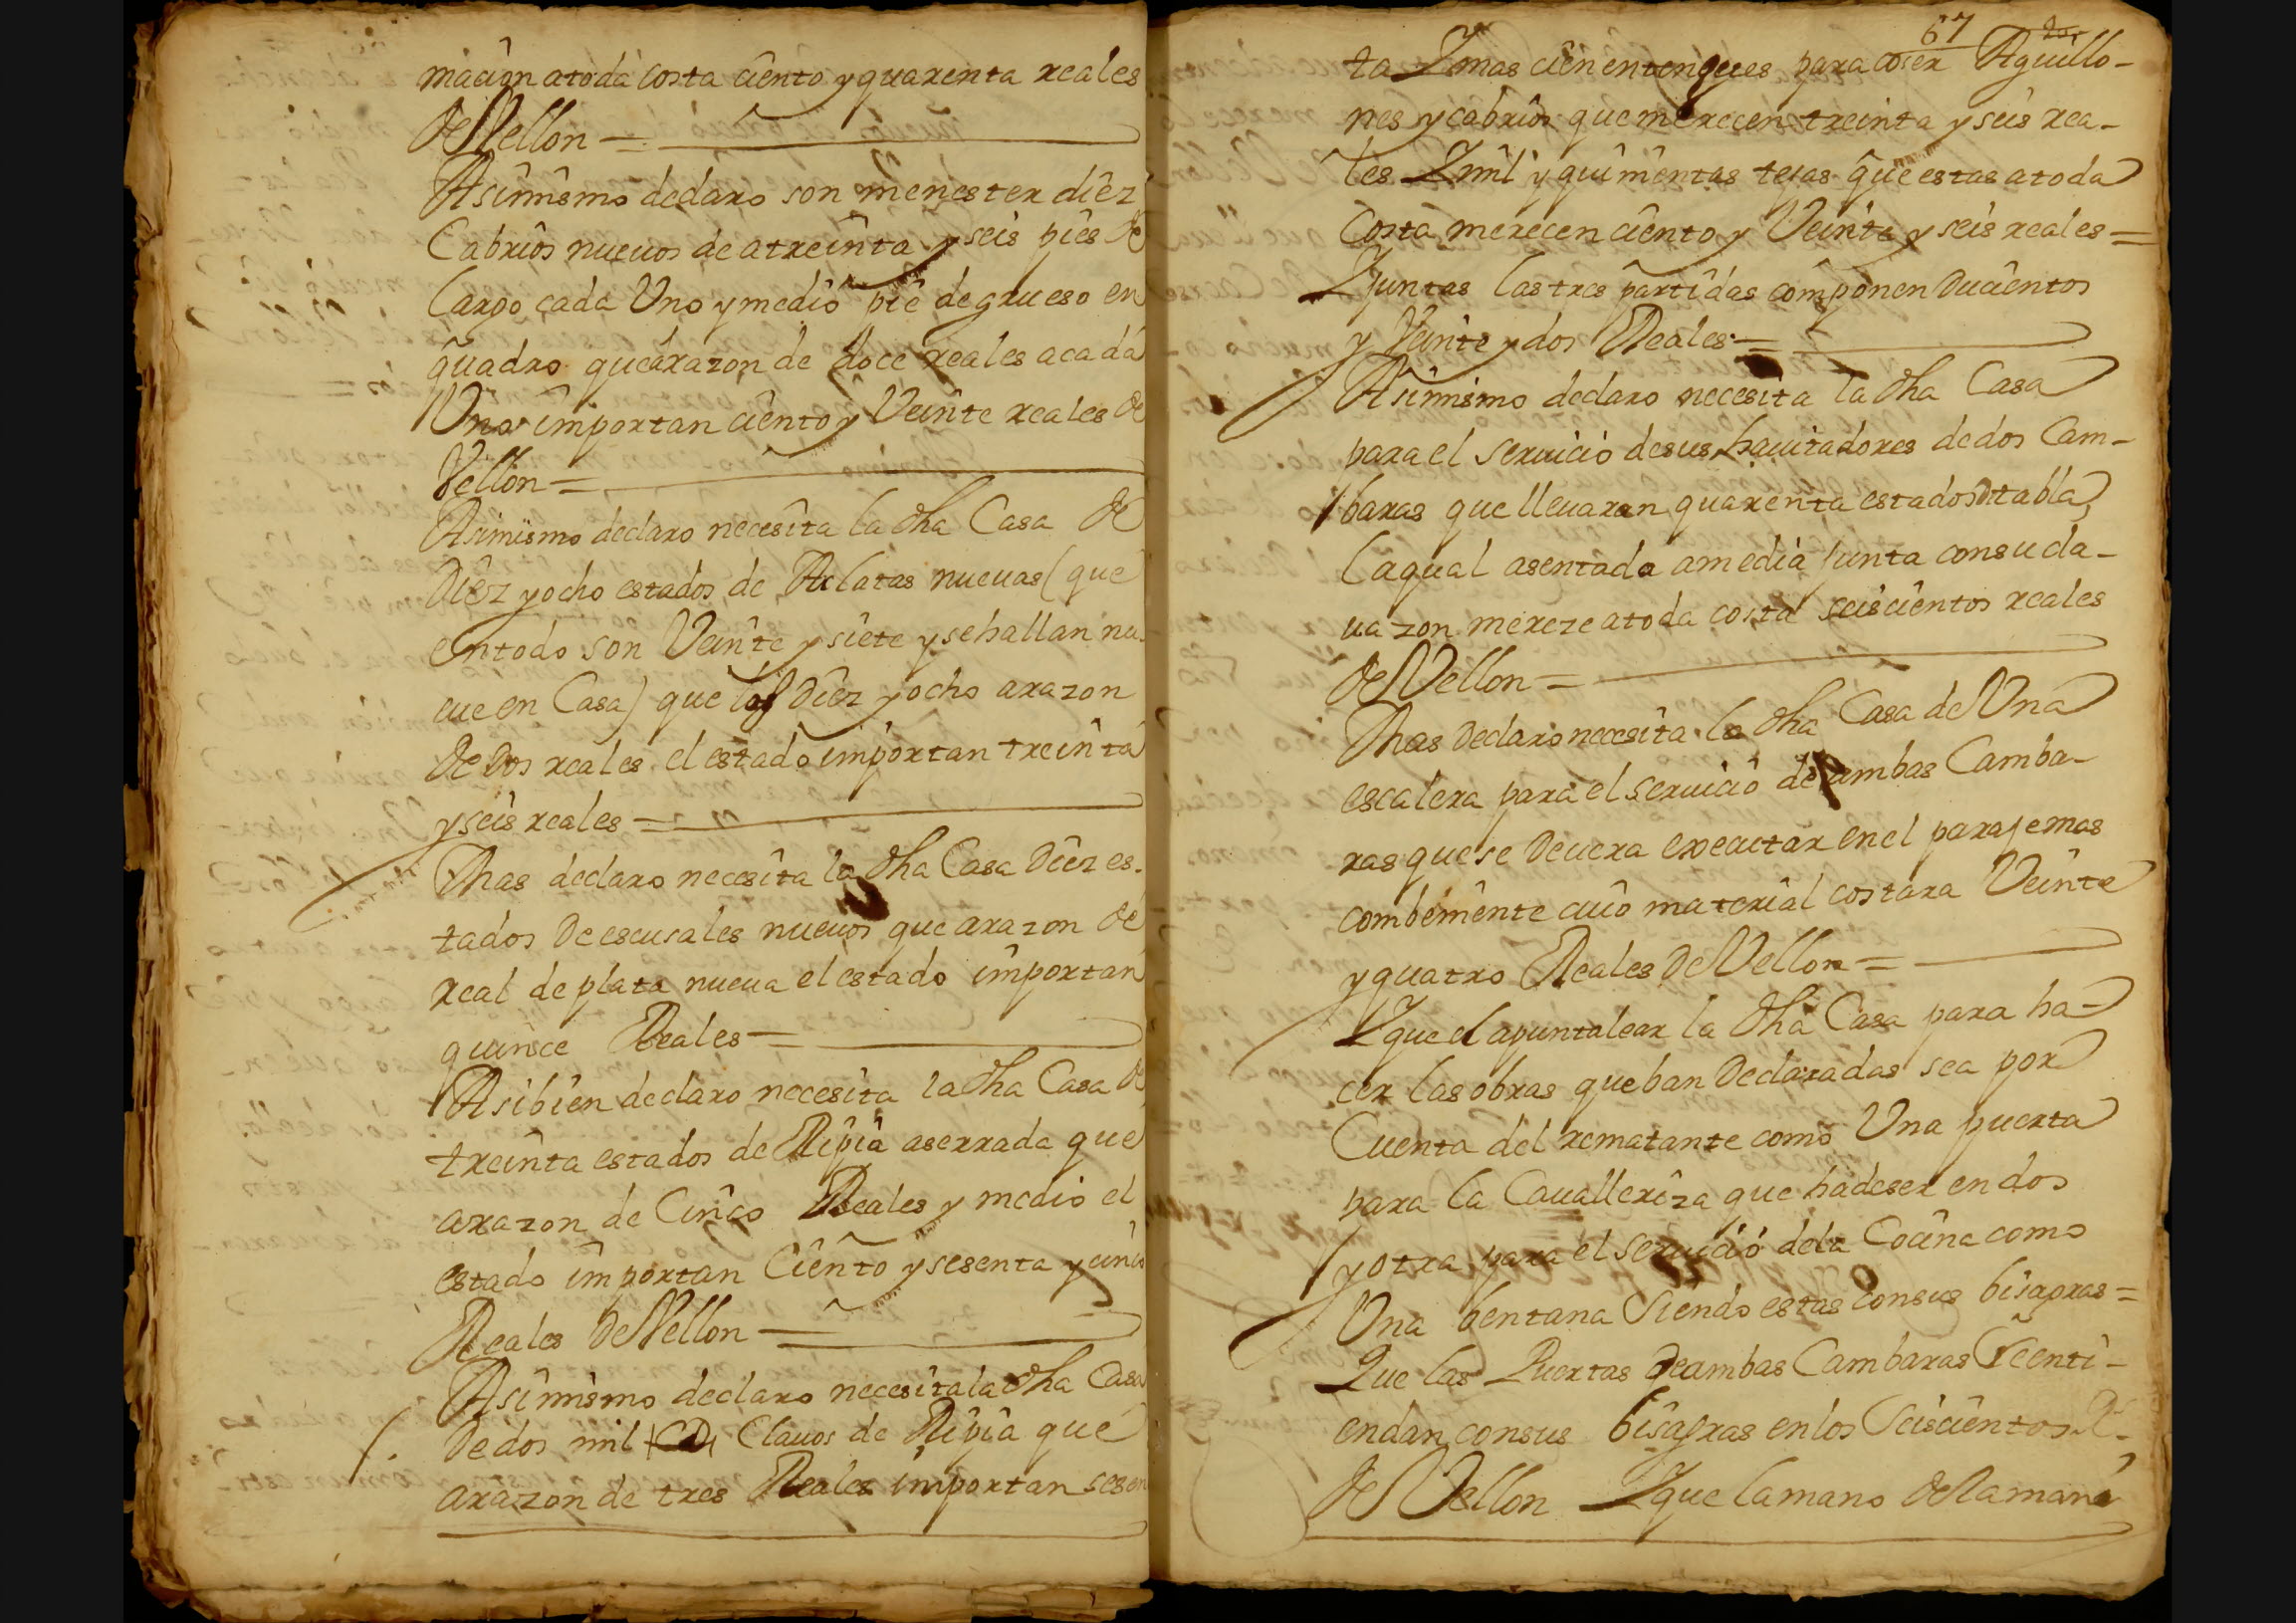 macion atoda costa ciento y quarenta reales
de Vellon =
Asimismo declaro son menester diez
Cabrios nuevos de atreinta y seis pies de
largo cada Uno y medio pie degrueso en
quadro que arazon de doce reales acada
Uno importan ciento y Veinte reales de
Vellon =
Asimismo declaro necesita la dha Casa de
Diez yocho estados de latas nuevas (que
entodo son Veinte y siete y sehallan nu
eue en Casa) que las Diez yocho arazon
de dos reales el estado importan treinta
y seis reales =
Mas declaro necesita la dha Casa Diez es-
tados De escusales nuevos que arazon de
real de plata nueua el estado importan
quince Reales =
Asibien declaro necesita la dha Casa de
treinta estados de Ripia aserrada que
arazon de Cinco Reales y medio el
estado importan Ciento y sesenta y cinco
Reales De Vellon =
Asimismo declaro necesita la dha Casa
De dos mil Clauos de Ripia que
arazon de tres Reales importan sesen
67
ta Y mas cien entengues para coser Aguillo-
nes y cabrios que merecen treinta y seis rea-
les Y mil y quinientas tejas que estas atoda
Costa merecen ciento y Veinte y seis reales =
Y juntas las tres partidas componen Ducientos
y Veinte y dos Reales =
Asimismo declaro necesita la dha Casa
para el seruicio desus hauitadores dedos Cam-
baras que lleuaran quarenta estados de tabla
la qual asentada amedia junta consu cla-
uazon mereze atoda costa seiscientos reales
de Vellon =
Mas Declaro necesita la dha Casa de Una
escalera para el seruicio de ambas Camba-
ras quese Deuera executar en el paraje mas
combeniente cuio material costara Veinte
y quatro Reales De Vellon =
Y que el apuntalear la dha Casa para ha-
cer las obras que ban Declaradas sea por
Cuenta del rematante como Una puerta
para la Caualleriza que hadeser en dos
y otra para el seruicio dela Cocina como
Una bentana siendo estas consus bisagras =
Que las Puertas de ambas Cambaras se enti-
endan consus bisagras en los Seiscientos Rs
de Vellon Y que la mano de la mani